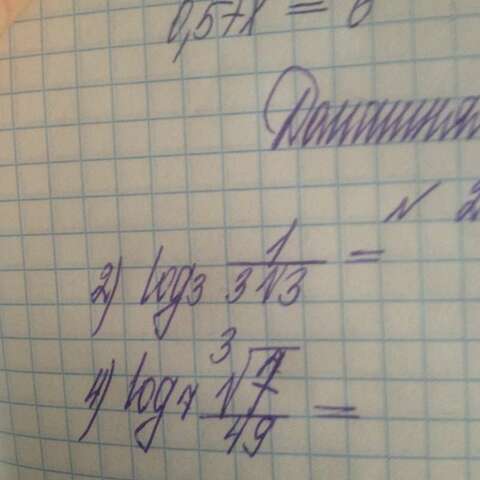 0,5+x = 6
Домашняя
№ 2
2) log₃ 1/(3√3) =
4) log₇ ∛7/49 =